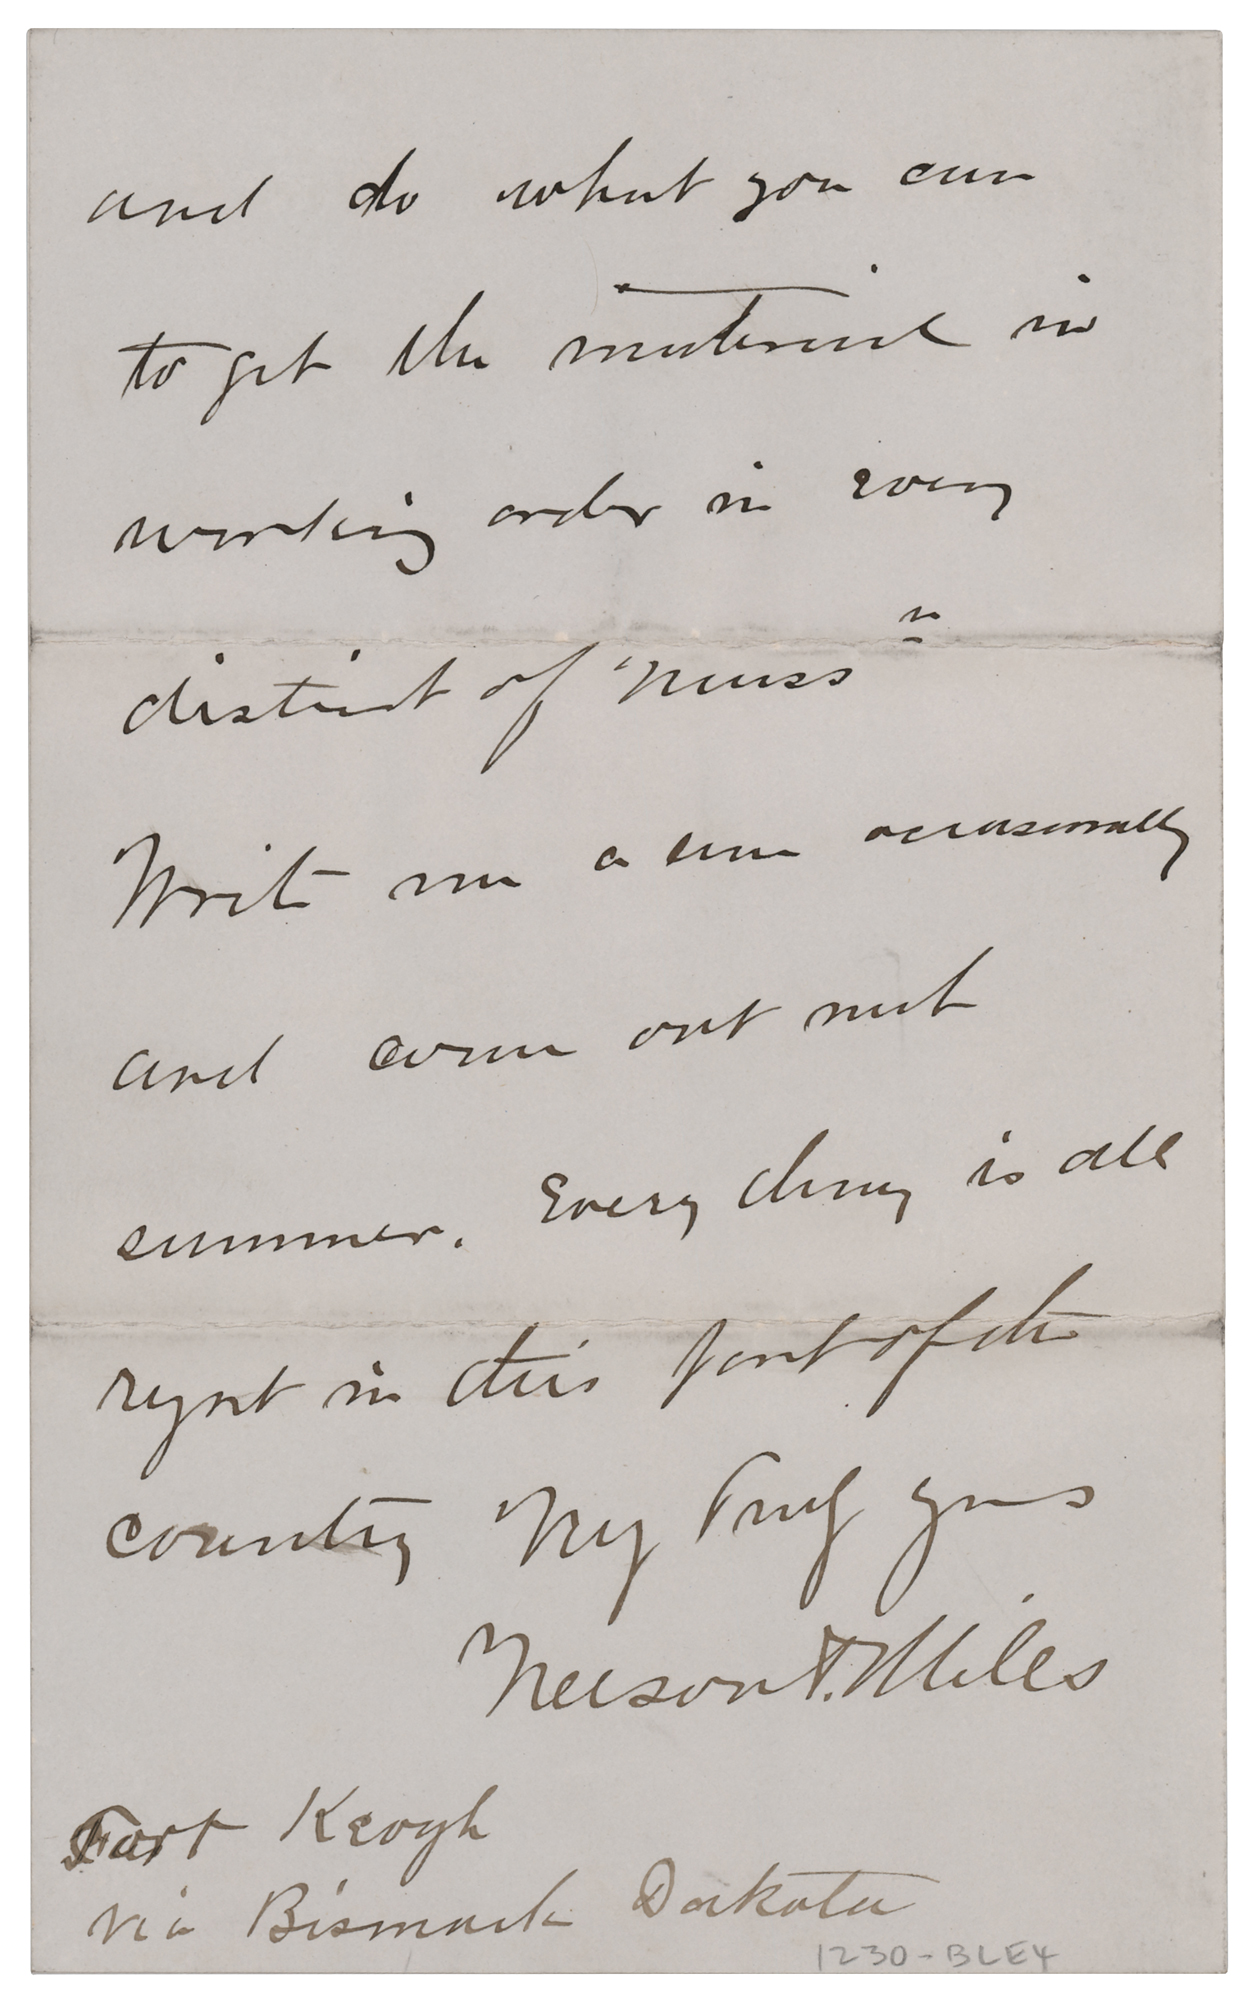 and do what you can
to get the material in
working order in every
district of Mass
Write me a line occasionally
and come out next
summer. Every thing is all
right in this part of the
country Very Truly yours
Nelson A. Miles
Fort Keogh
via Bismark Dakota
1230-BLE4